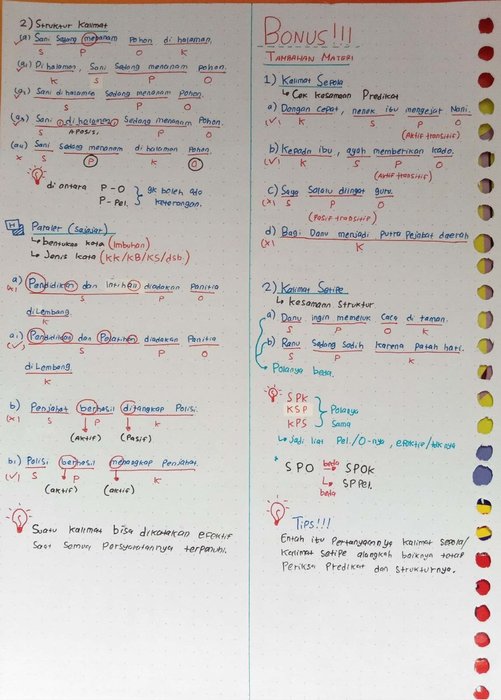 2) Struktur Kalimat
(a) Sani Sedang menanam Pohon di halaman.
(✓) S P O K
(a1) Di halaman, Sani Sedang menanam Pohon.
(✓) K S P O
(a2) Sani di halaman Sedang menanam Pohon.
(✓) S K P O
(a3) Sani, di halaman, Sedang menanam Pohon.
(✓) S APOSISI P O
(a4) Sani Sedang menanam di halaman Pohon
× S P K O
di antara P - O
P - Pel.
gk boleh ada
keterangan.
Paralel (Sejajar)
↳ bentukan kata (Imbuhan)
↳ Jenis kata (KK/KB/KS/dsb.)
a) Pendidikan dan latihan diadakan Panitia
(×) S P O
di Lembang.
K
a1) Pendidikan dan Pelatihan diadakan Panitia
(✓) S P O
di Lembang.
K
b) Penjahat berhasil ditangkap Polisi.
(×) S P K
(Aktif) (Pasif)
b1) Polisi berhasil menangkap Penjahat.
(✓) S P K
(aktif) (aktif)
Suatu kalimat bisa dikatakan efektif
Saat Semua Persyaratannya terpenuhi.
BONUS!!!
TAMBAHAN MATERI
1) Kalimat Sepola
↳ Cek kesamaan Predikat
a) Dengan cepat, nenek itu mengejat Nani.
(✓) K S P O
(Aktif transitif)
b) Kepada ibu, ayah memberikan kado.
(✓) K S P O
(Aktif transitif)
c) Saya Selalu diingat guru.
(×) S P O
(Pasif transitif)
d) Bagi Danu menjadi Putra Pejabat daerah
(×) K
2) Kalimat Setipe
↳ kesamaan Struktur
a) Danu ingin memeluk Caca di taman.
S P O K
b) Ranu Sedang Sedih karena Patah hati.
S P K
↳ Polanya beda.
SPK
KSP
KPS
Polanya
Sama
↳ Jadi liat Pel./O-nya, efektif/tdknya
* SPO beda → SPOK
↳ SPPel.
beda
Tips!!!
Entah itu Pertanyaannya kalimat Sepola/
kalimat Setipe alangkah baiknya tetap
Periksa Predikat dan Strukturnya.